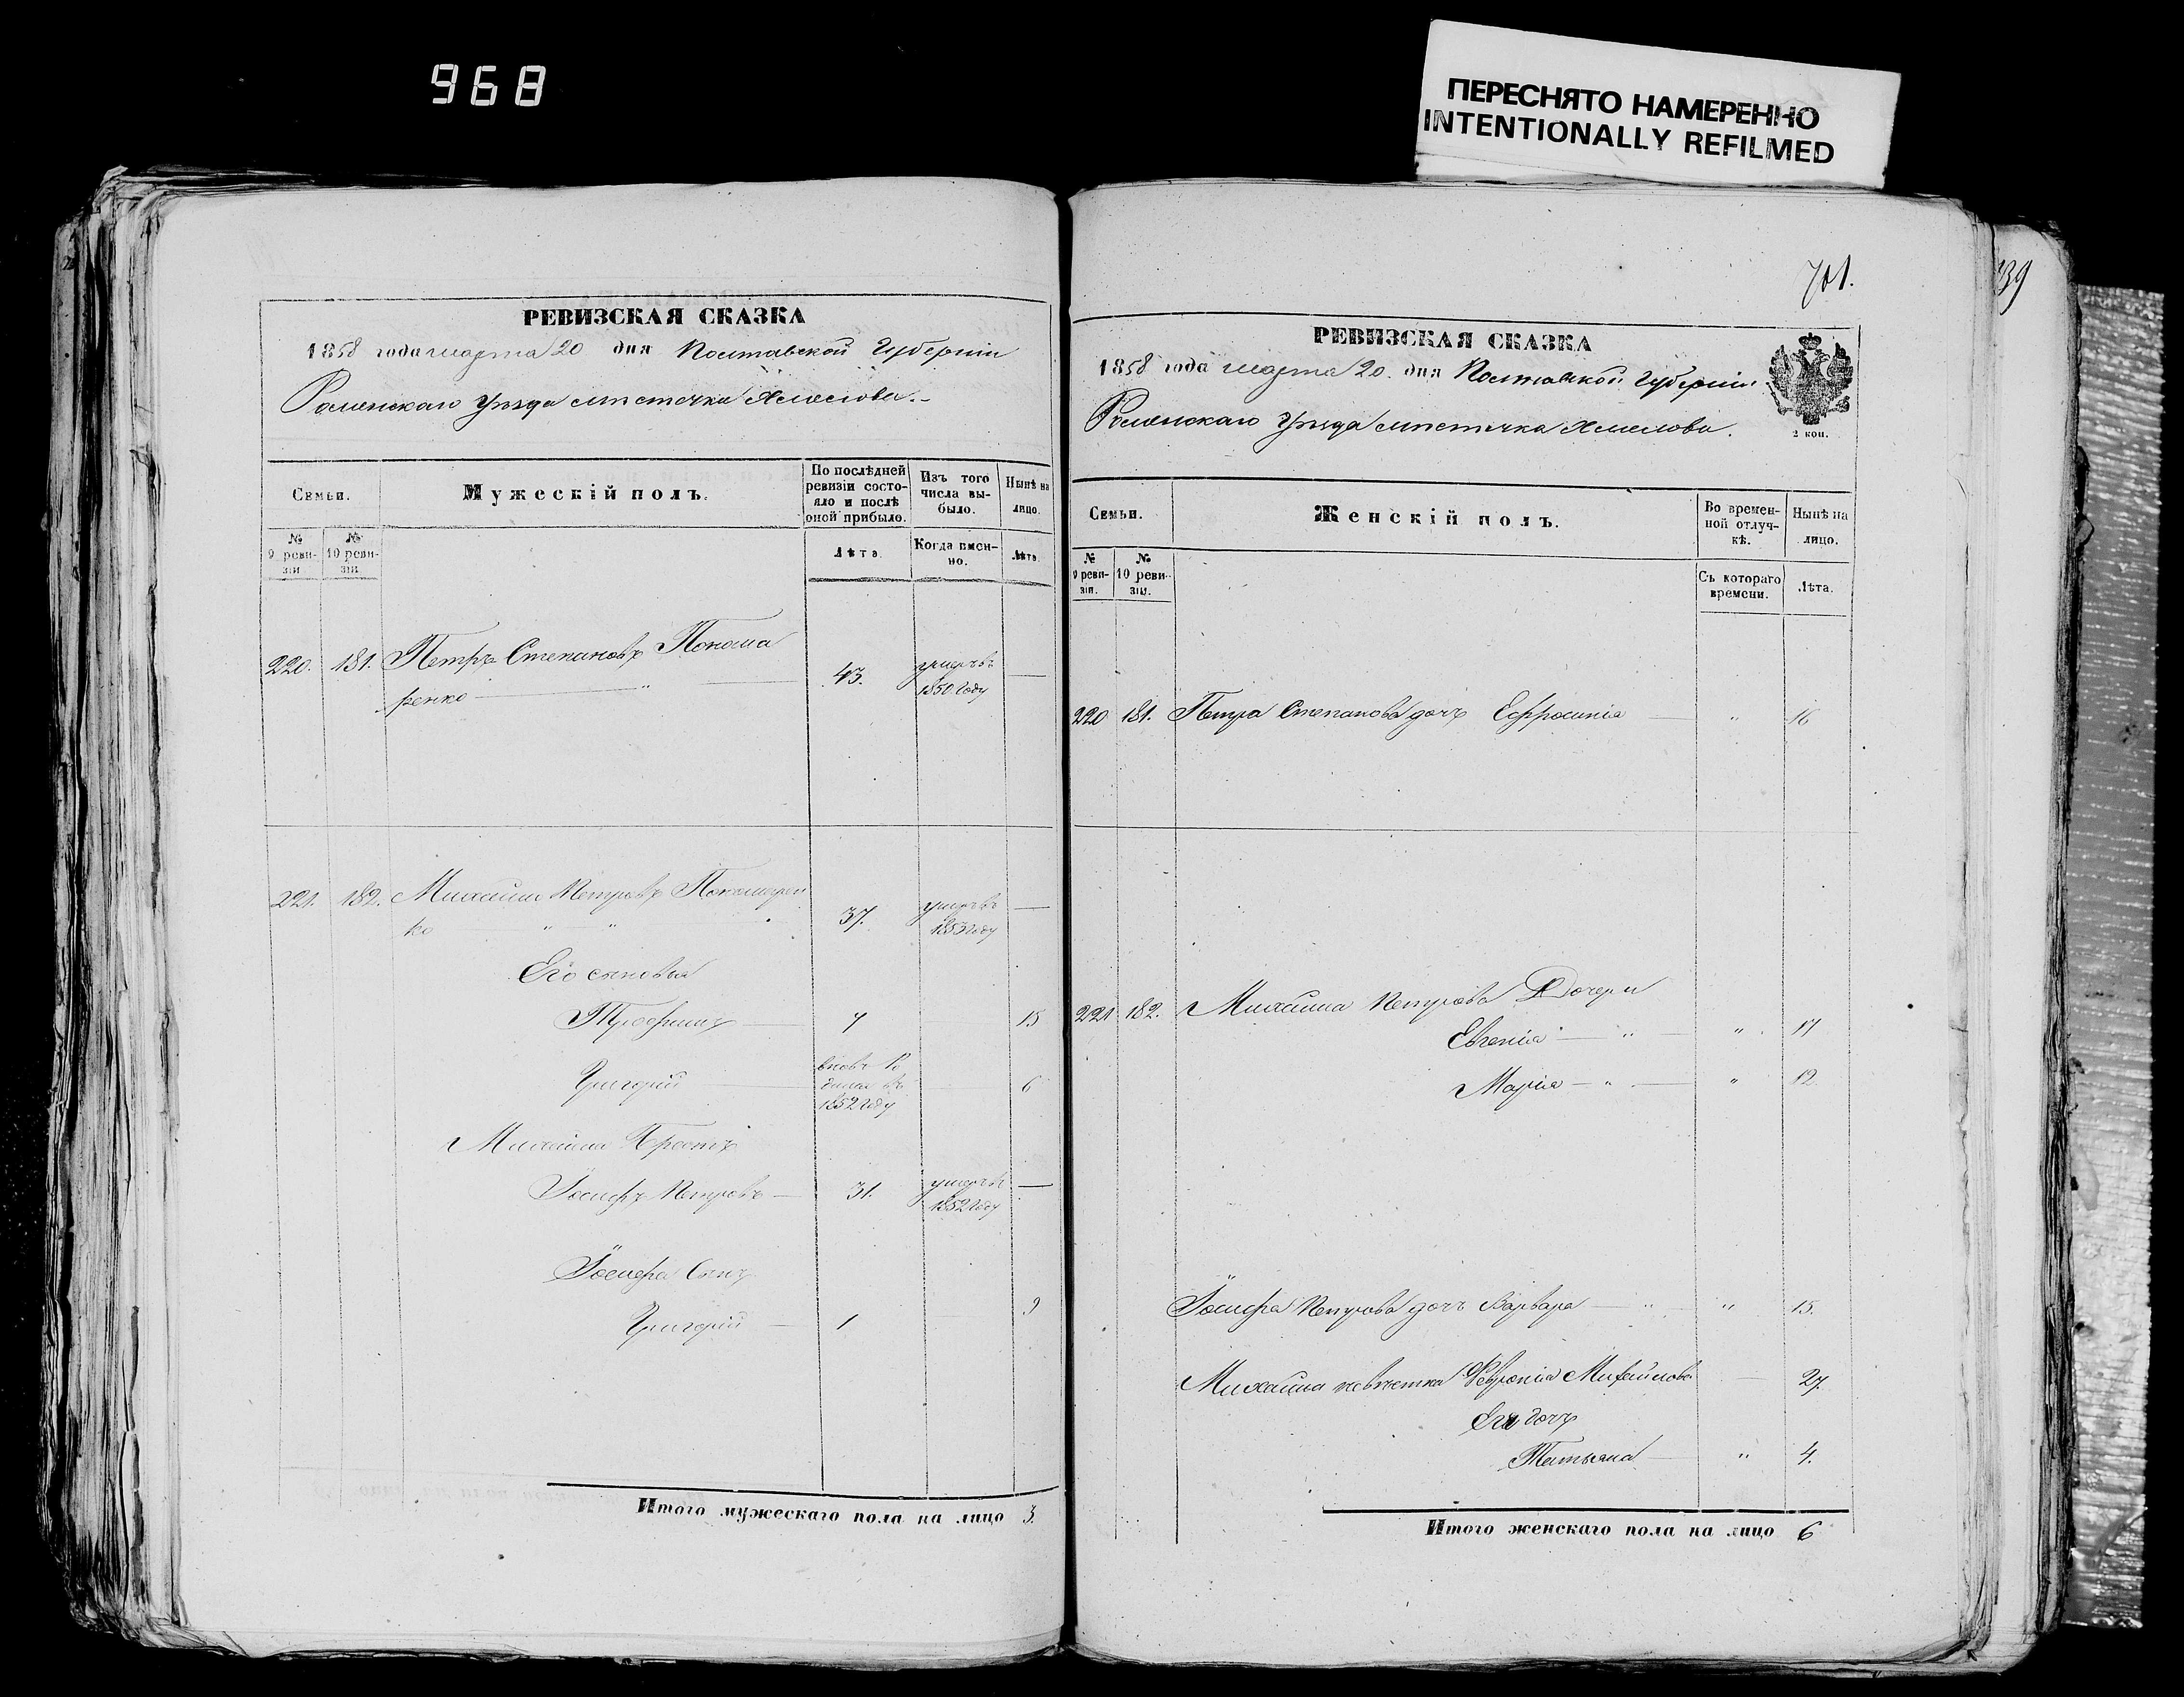 968
ПЕРЕСНЯТО НАМЕРЕННО
INTENTIONALLY REFILMED
РЕВИЗСКАЯ СКАЗКА
1858 года марта 20 дня Полтавской Губерніи
Роменскаго Уѣзда мѣстечка Хмелова.
Семьи.
Мужескій полъ.
По послѣдней ревизіи состо-
яло и послѣ
оной прибыло.
Изъ того
числа вы-
было.
Нынѣ на
лицо.
№
9 реви-
зіи
№
10 реви-
зіи.
Лѣта.
Когда имен-
но.
Лѣта.
220. 181. Петръ Степановъ Понома
ренко " 43. умеръ въ
1850 году
221. 182. Михаилъ Петровъ Пономарен
ко " " 37. умеръ въ
1853 году
Его сыновья
Трофимъ 7 15
Григорій вновь Ро
дился въ
1852 году 6
Михаила Братъ
Іосифъ Петровъ 31. умеръ въ
1852 году
Іосифа Сынъ
Григорій 1 9
Итого мужескаго пола на лицо 3.
701.
39
РЕВИЗСКАЯ СКАЗКА
1858 года марта 20. дня Полтавской Губерніи
Роменскаго Уѣзда мѣстечка Хмелова.
2 коп.
Семьи.
Женскій полъ.
Во времен-
ной отлуч-
кѣ.
Нынѣ на
лицо.
№
9 реви-
зіи.
№
10 реви-
зіи.
Съ котораго
времени.
Лѣта.
220 181. Петра Степанова дочь Ефросинія " 16
221 182. Михаила Петрова Дочери
Евгенія " " 17
Марія " " 12
Іосифа Петрова дочь Варвара " " 15.
Михаила невѣстка Февронія Михайлова 27.
Ея дочь
Татьяна " 4.
Итого женскаго пола на лицо 6